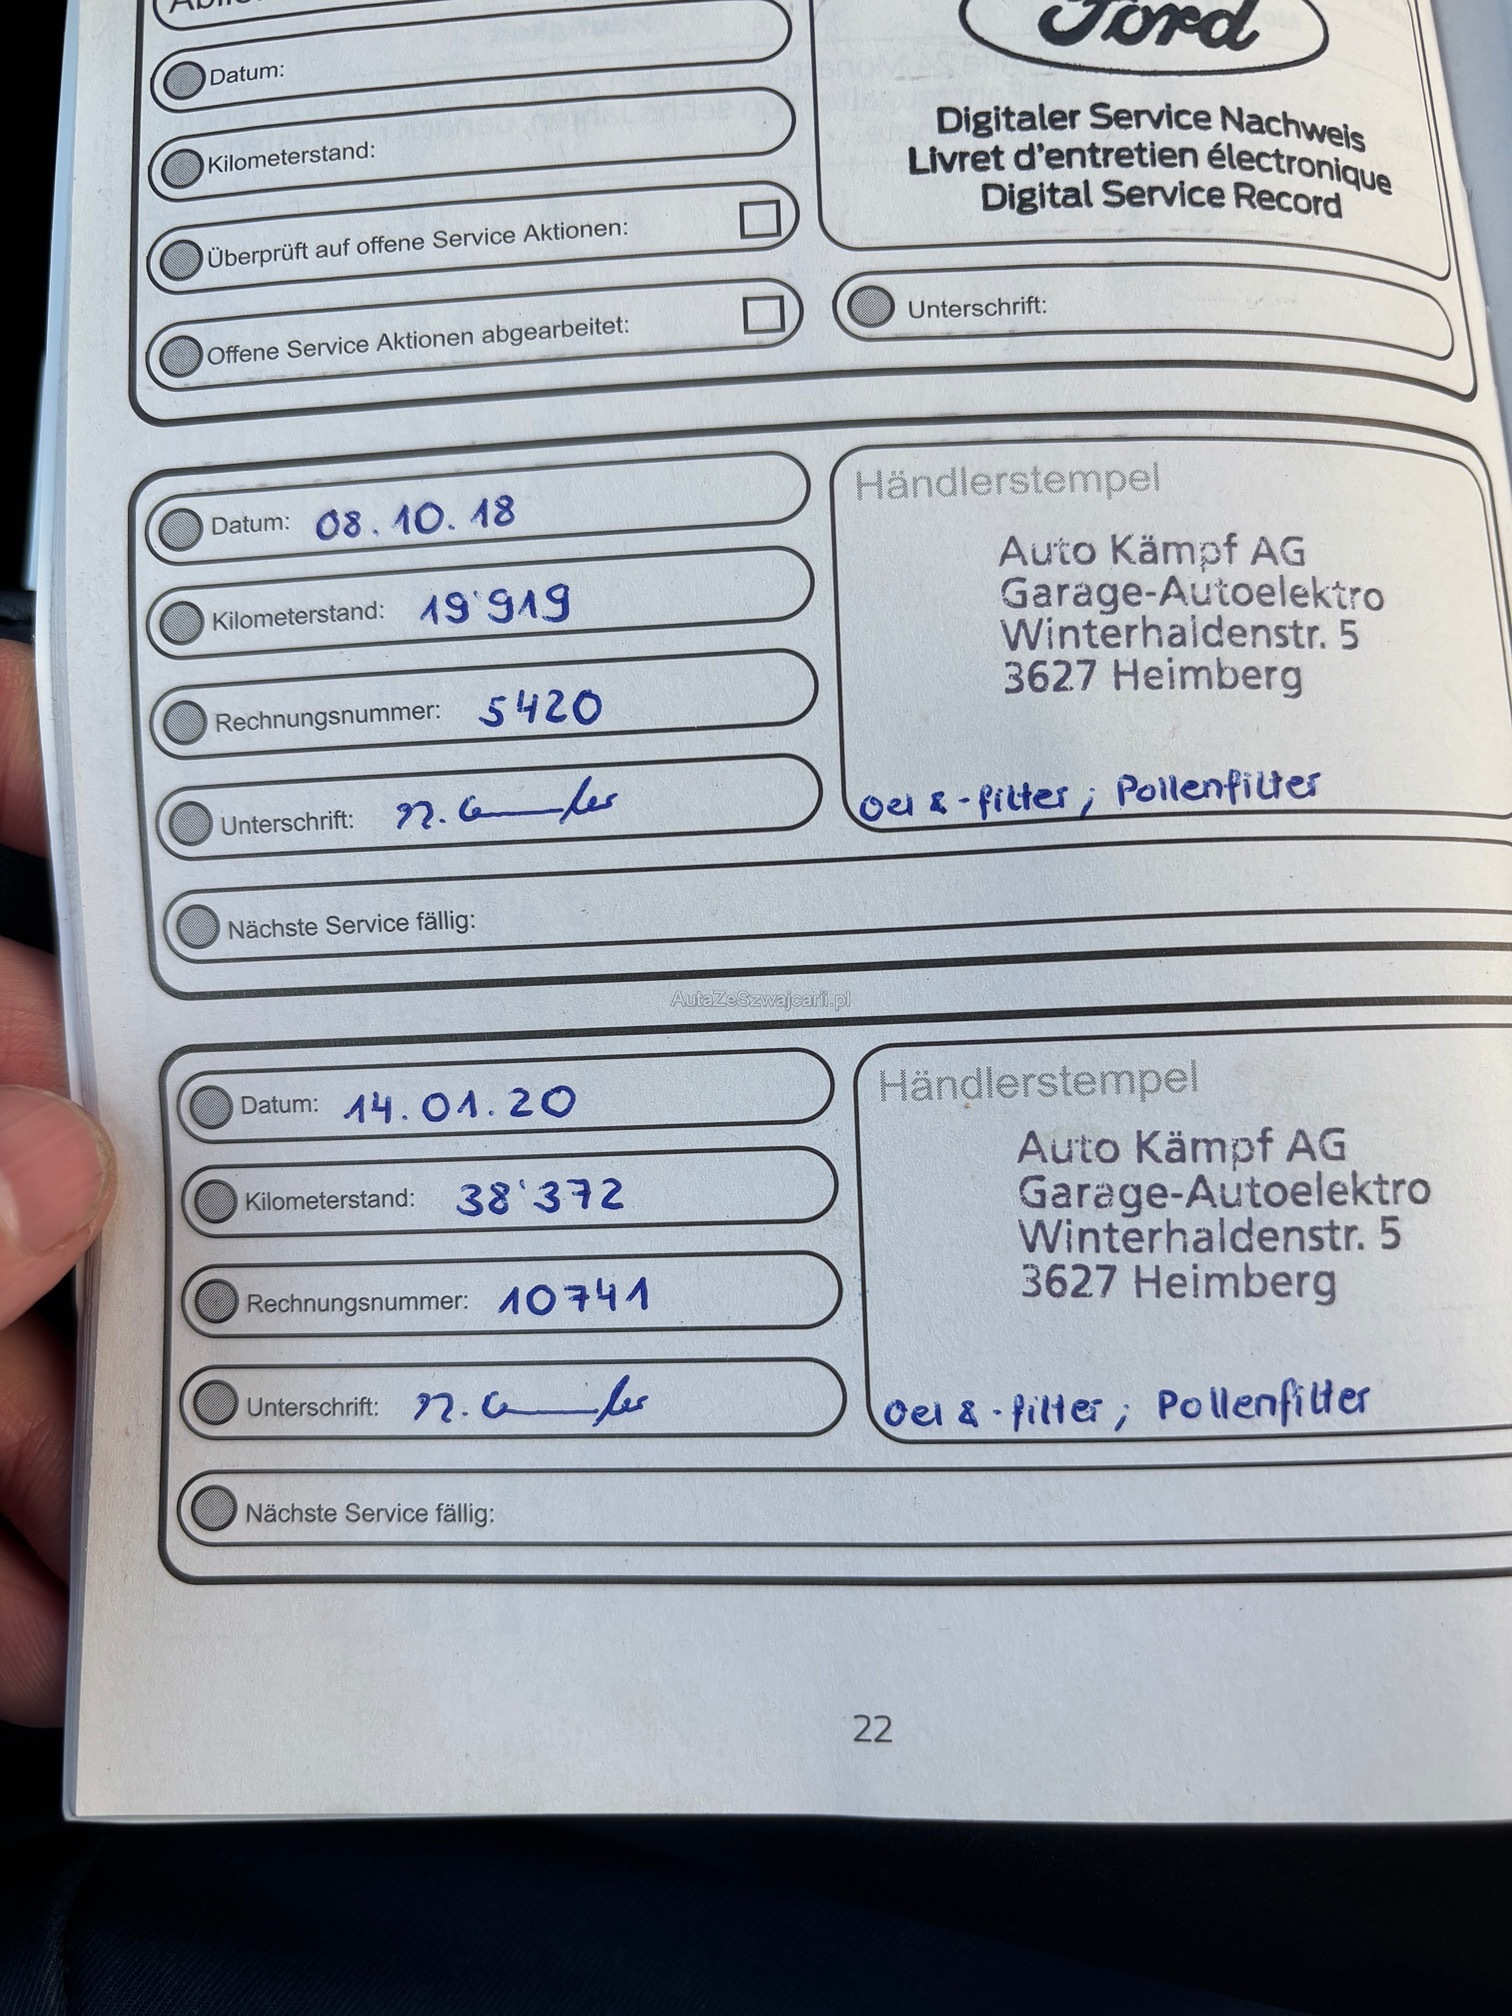 Ford
Digitaler Service Nachweis
Livret d'entretien électronique
Digital Service Record
Datum:
Kilometerstand:
Überprüft auf offene Service Aktionen:
Offene Service Aktionen abgearbeitet:
Unterschrift:
Datum: 08.10.18
Kilometerstand: 19'919
Rechnungsnummer: 5420
Unterschrift:
Händlerstempel
Auto Kämpf AG
Garage-Autoelektro
Winterhaldenstr. 5
3627 Heimberg
Oel & -filter ; Pollenfilter
Nächste Service fällig:
AutaZeSzwajcarii.pl
Datum: 14.01.20
Kilometerstand: 38'372
Rechnungsnummer: 10741
Unterschrift:
Händlerstempel
Auto Kämpf AG
Garage-Autoelektro
Winterhaldenstr. 5
3627 Heimberg
Oel & -filter ; Pollenfilter
Nächste Service fällig:
22